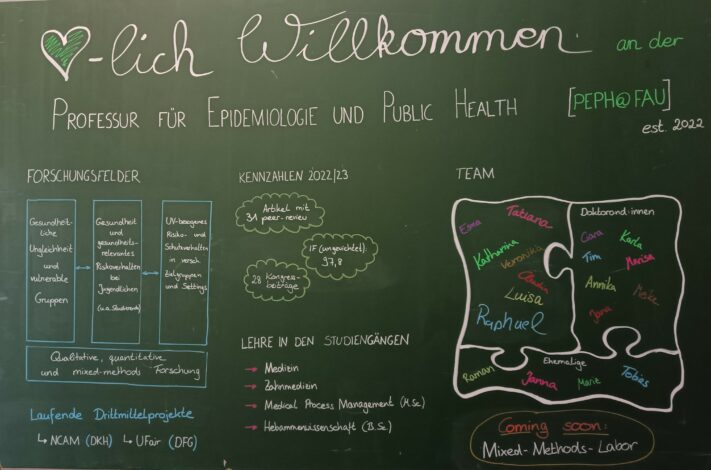 -lich Willkommen an der
PROFESSUR FÜR EPIDEMIOLOGIE UND PUBLIC HEALTH [PEPH@FAU]
est. 2022
FORSCHUNGSFELDER
Gesundheit-
liche
Ungleichheit
und
vulnerable
Gruppen
Gesundheit
und
gesundheits-
relevantes
Risikoverhalten
bei
Jugendlichen
(u.a. Studierende)
UV-bezogenes
Risiko- und
Schutzverhalten
in versch.
Zielgruppen
und Settings
Qualitative, quantitative
und mixed-methods Forschung
Laufende Drittmittelprojekte
↳ NCAM (DKH) ↳ UFair (DFG)
KENNZAHLEN 2022/23
Artikel mit
31 peer-review
IF (ungewichtet):
97,8
28 Kongress-
beiträge
LEHRE IN DEN STUDIENGÄNGEN
→ Medizin
→ Zahnmedizin
→ Medical Process Management (M.Sc.)
→ Hebammenwissenschaft (B.Sc.)
TEAM
Esma
Tatiana
Katharina
Veronika
Claudia
Luisa
Raphael
Doktorand·innen
Ciara
Karla
Tim
Marisa
Annika
Meike
Jana
Ehemalige
Raman
Janna
Marie
Tobias
Coming soon:
Mixed-Methods-Labor